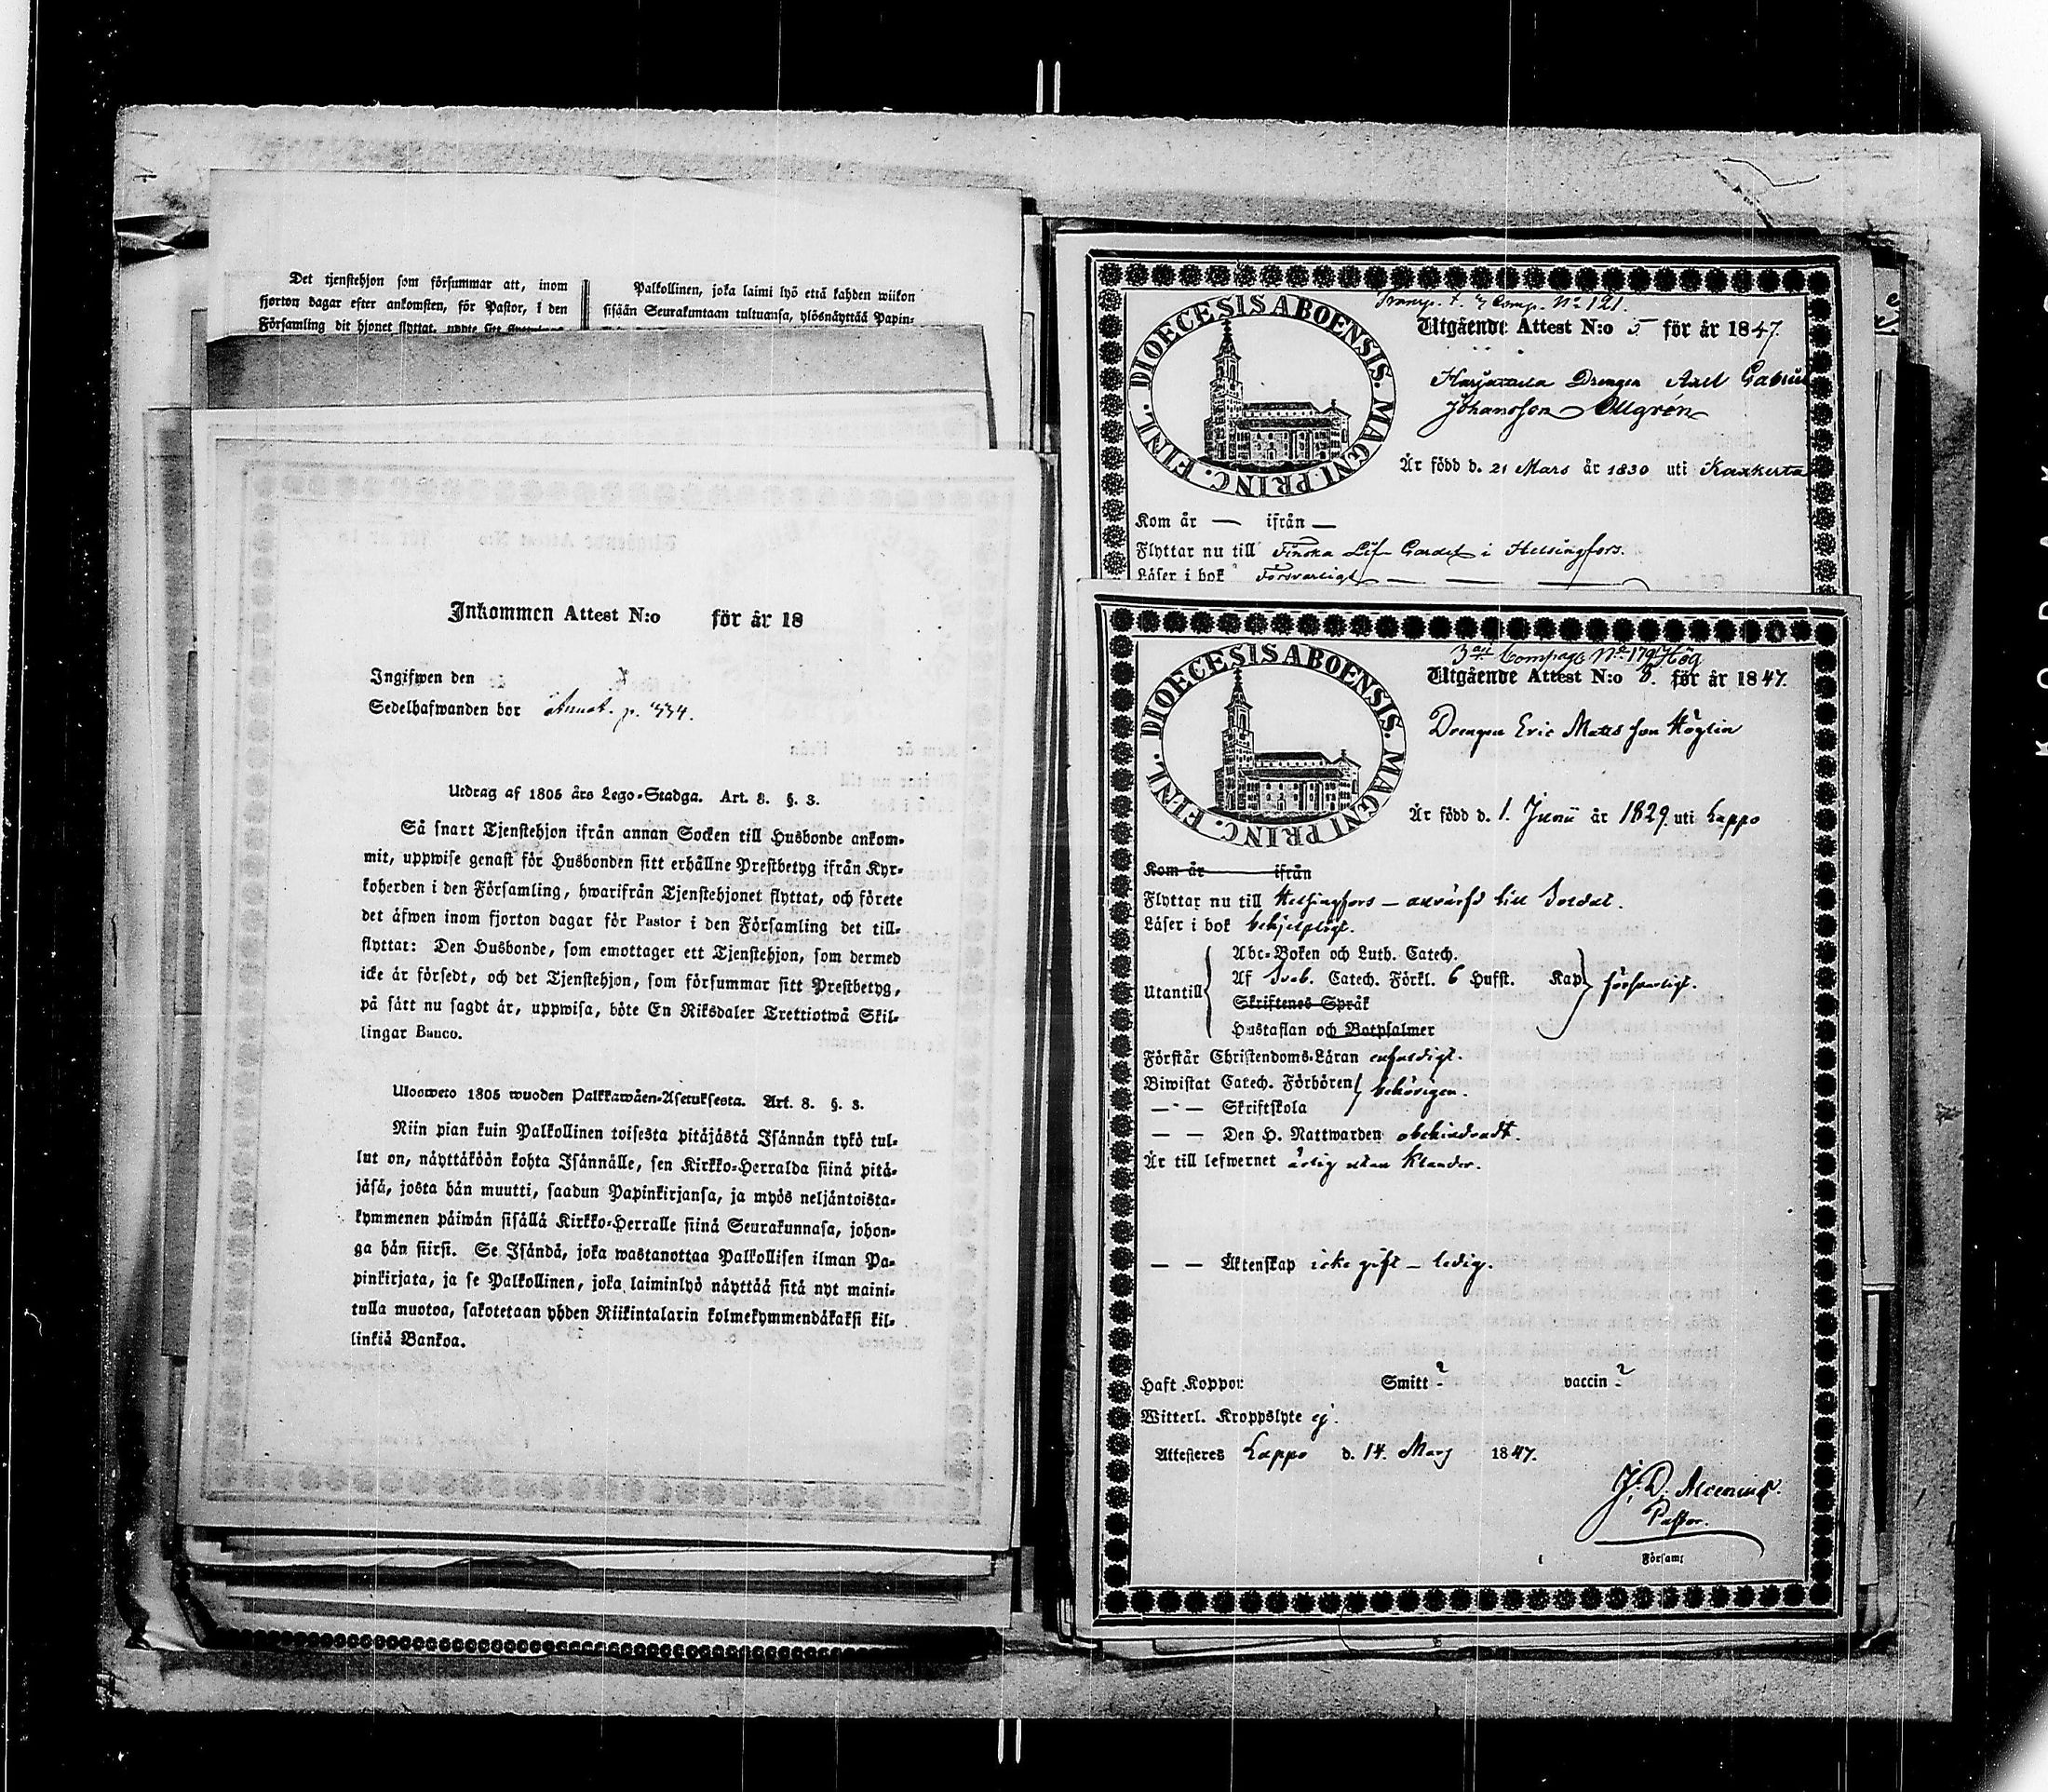 Det tjenstehjon som försummar att, inom
fjorton dagar efter ankomsten, för Pastor, i den
Församling dit hjonet flyttat, uppte sitt
Palkollinen, joka laimi lyö että kahden wiikon
sisään Seurakuntaan tultuansa, ylösnäyttää Papin-
Inkommen Attest N:o för år 18
Ingifwen den
Sedelhafwanden bor Annot. p. 434.
Utdrag af 1805 års Lego-Stadga. Art. 8. §. 3.
Så snart Tjenstehjon ifrån annan Socken till Husbonde ankom-
mit, uppwise genast för Husbonden sitt erhållne Prestbetyg ifrån Kyr-
koherden i den Församling, hwarifrån Tjenstehjonet flyttat, och förete
det äfwen inom fjorton dagar för Pastor i den Församling det till-
flyttat: Den Husbonde, som emottager ett Tjenstehjon, som dermed
icke är försedt, och det Tjenstehjon, som försummar sitt Prestbetyg,
på sätt nu sagdt är, uppwisa, böte En Riksdaler Trettiotwå Skil-
lingar Banco.
Uloosweto 1805 wuoden Palkkawäen-Asetuksesta. Art. 8. §. 3.
Niin pian kuin Palkollinen toisesta pitäjästä Isännän tykö tul-
lut on, näyttäköön kohta Isännälle, sen Kirkko-Herralda siinä pitä-
jäsä, josta hän muutti, saadun Papinkirjansa, ja myös neljäntoista-
kymmenen päiwän sisällä Kirkko-Herralle siinä Seurakunnasa, johon-
ga hän siirsi. Se Isändä, joka wastanottaa Palkollisen ilman Pa-
pinkirjata, ja se Palkollinen, joka laiminlyö näyttää sitä nyt maini-
tulla muotoa, sakotetaan yhden Riikintalarin kolmekymmendäkaksi kil-
linkiä Bankoa.
DIOECESIS ABOENSIS. MAGNI PRINC. FINL.
Comp. No 121.
Utgående Attest N:o 5 för år 1847.
Drengen Axel Gabriel
Johansson Ollgrén
Är född d. 21 Mars år 1830 uti Kaxkerta
Kom år — ifrån —
Flyttar nu till Finska Lif Gardet i Helsingfors.
Läser i bok Försvarligt
DIOECESIS ABOENSIS. MAGNI PRINC. FINL.
No 179 Hög
Utgående Attest N:o 8. för år 1847.
Drengen Eric Matts son Höglin
Är född d. 1. Junii år 1829. uti Lappo
Kom år ifrån
Flyttar nu till Helsingfors — anvärfd till Soldat.
Läser i bok behjelpligt.
Utantill
Abc-Boken och Luth. Catech.
Af Sveb. Catech. Förkl. 6 Hufst. Kap försvarligt.
Skriftenes Språk
Hustaflan och Botpsalmer
Förstår Christendoms-Läran enfaldigt.
Biwistat Catech. Förhören behörigen.
— — Skriftskola
— — Den H. Nattwarden obehindradt.
Är till lefwernet ärlig utan klander.
— — Äktenskap icke gift — ledig.
Haft Koppor: Smitt ? vaccin ?
Witterl. Kroppslyte ej.
Attesteres Lappo d. 14. Mars 1847.
J. D. Alcenius.
Pastor.
i Församl
KODAK S